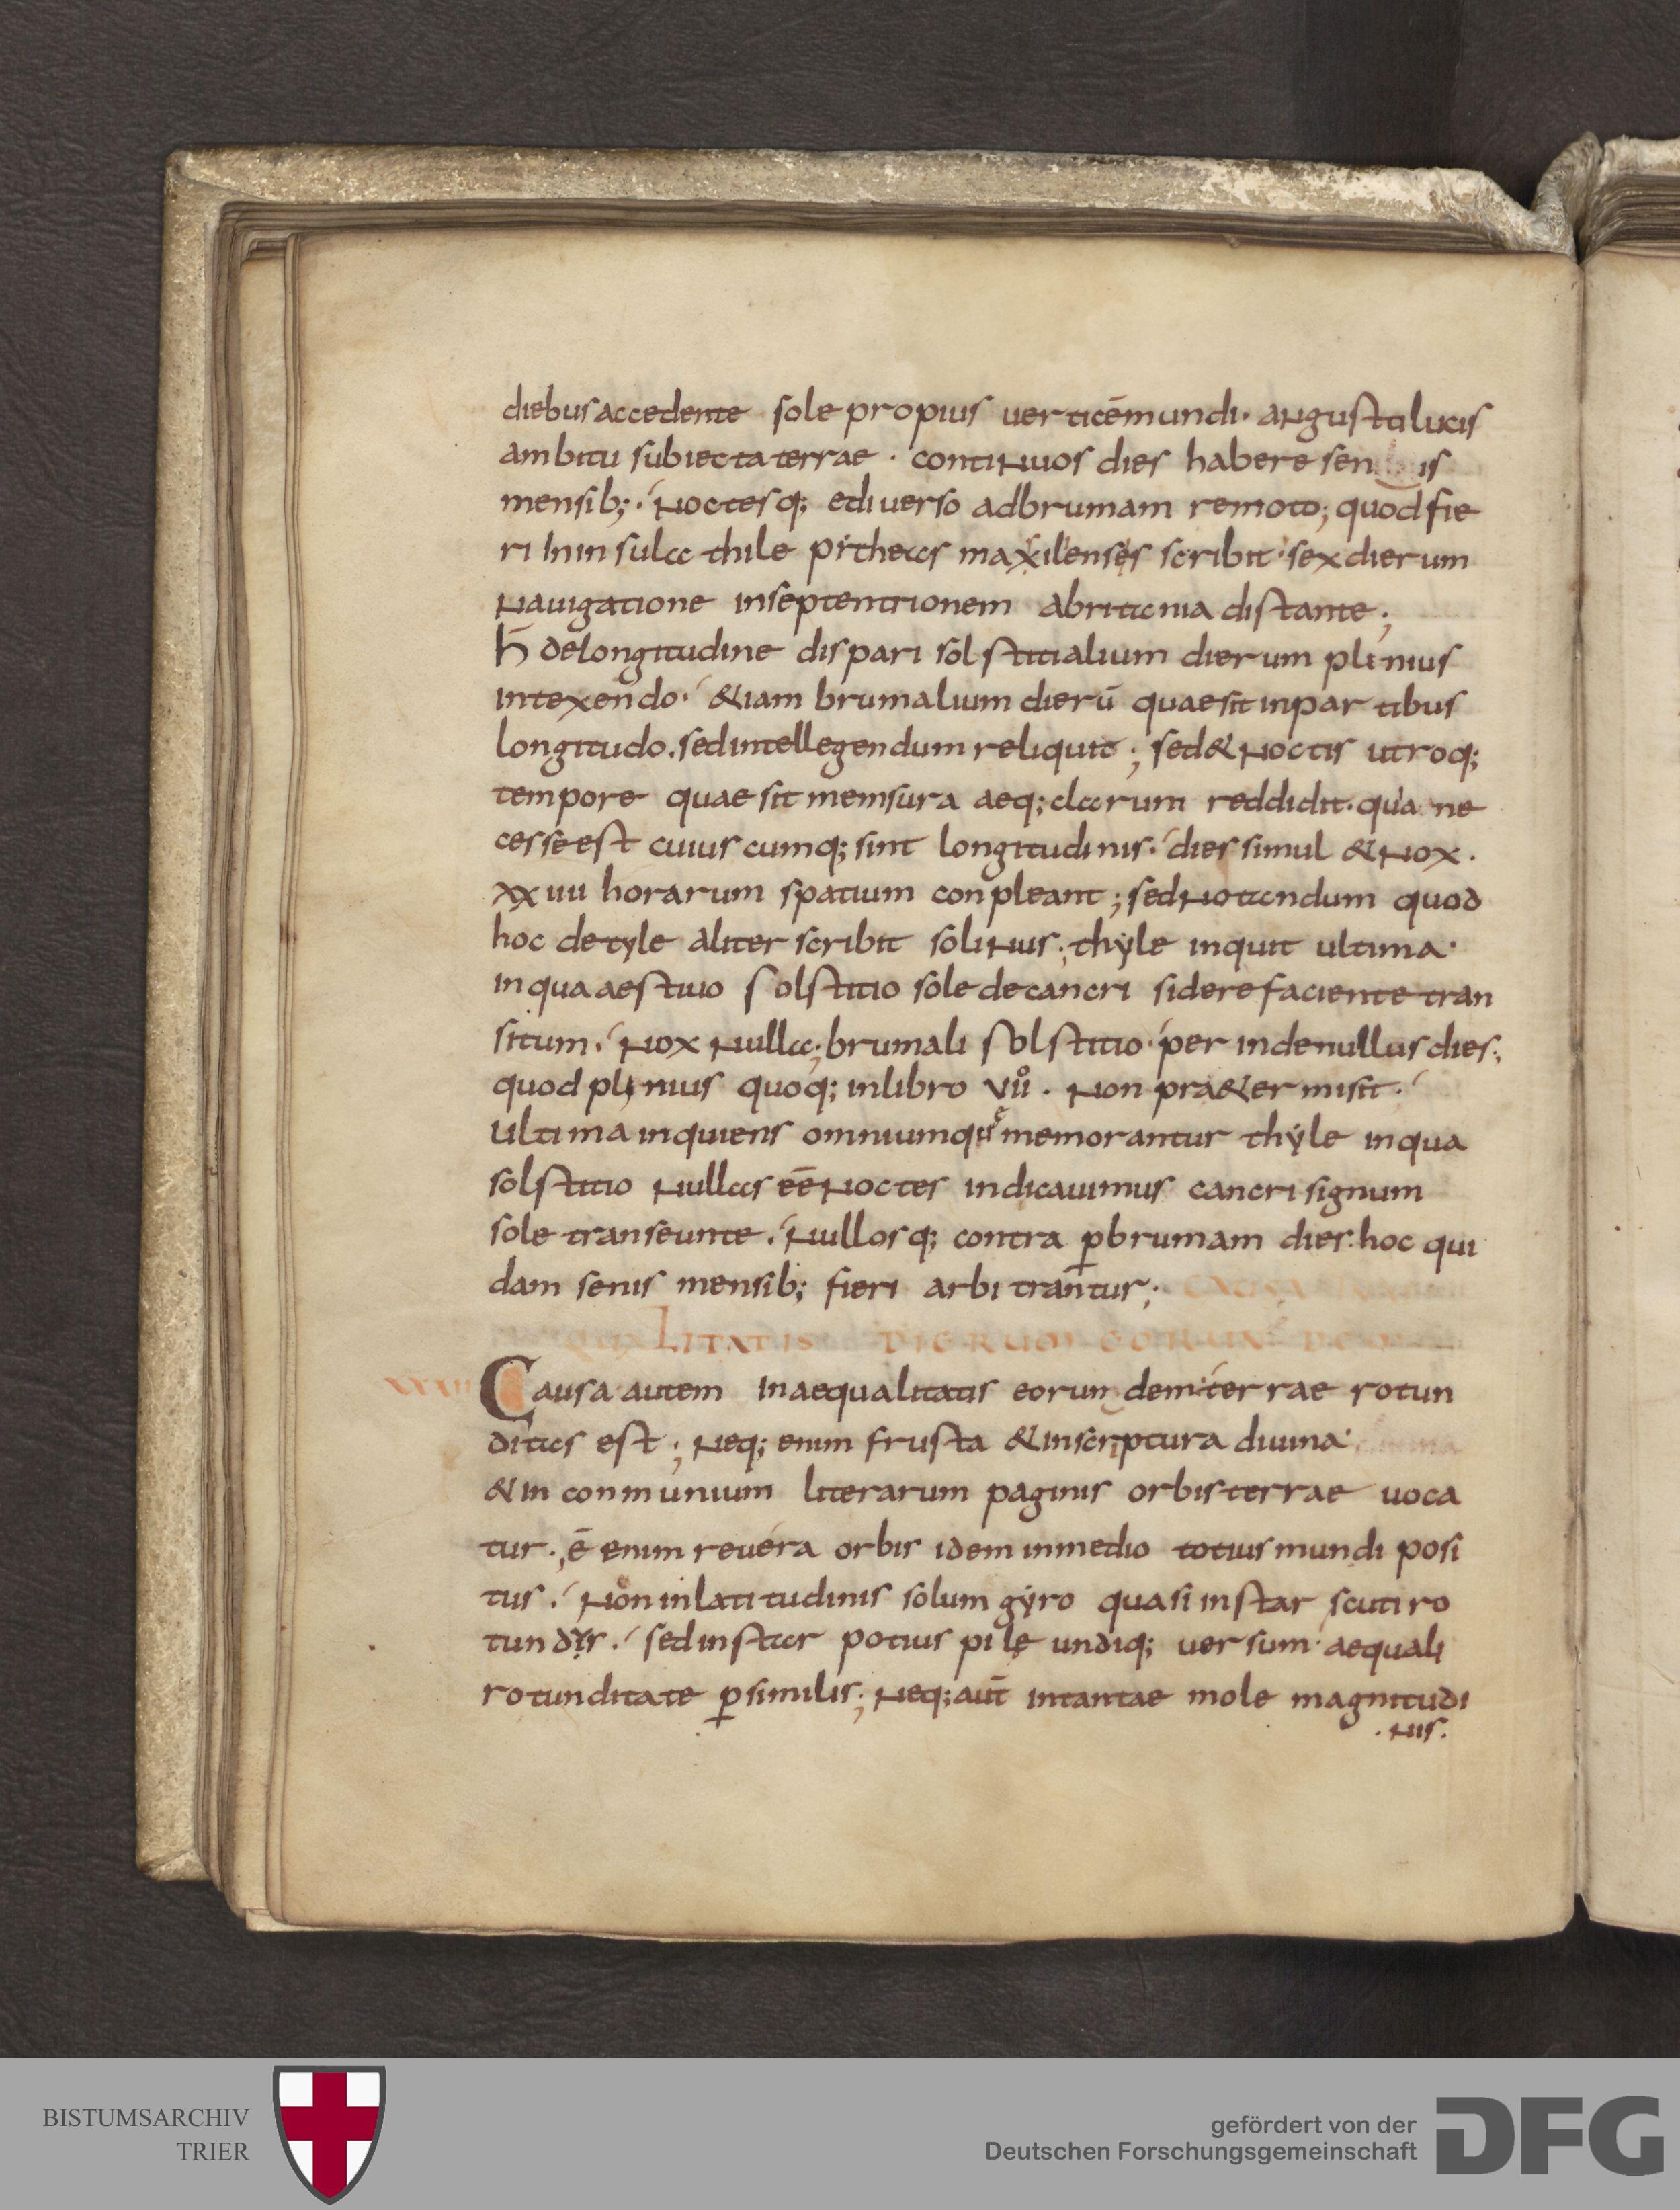 diebus accedente sole propius uerticēmundi· angusto lucis
ambitu subiecta terrae · continuos dies habere sen is
mensib;· noctesq; ediuerso adbrumam remoto; quod fie
ri In insula thile pitheas maxilenses scribit· sex dierum
nauigatione inseptentrionem abrittania distante;
h̄ delongitudine dispari solstitialium dierum plinius
intexendo· &iam brumalium dierū quae sit inpartibus
longitudo. sedintellegendum reliquit; sed& noctis utroq;
tempore quae sit mensura aeq; clarum reddidit· quia ne
cesse est cuiuscumq; sint longitudinis· dies simul & nox·
xxiiii horarum spatium conpleant; sed notandum quod
hoc detyle aliter scribit solinus; thyle inquit ultima·
inqua aestiuo solstitio sole decancri sidere faciente tran
situm· nox nulla; brumali solstitio· per inde nullus dies;
quod plinius quoq; inlibro vii̊· non pra&ermisit·
ultima inquiens omnium quę memorantur thyle inqua
solstitio nullas eē noctes indicauimus cancri signum
sole transeunte· nullosq; contra ꝑbrumam dies· hoc qui
dam senis mensib; fieri arbitrantur;
QUALITATIS DIERUM EORUN
Causa autem Inaequalitatis eorundem· terrae rotun
ditas est; neq; enim frusta &inscriptura diuina·
&in conmunium literarum paginis orbis terrae uoca
tur·; ē enim reuera orbis idem inmedio totius mundi posi
tus· Non inlatitudinis solum gyro quasi instar scuti ro
tundis· sed instar potius pile undiq; uersum· aequali
rotunditate ꝑsimilis; neq; aut̄ intantae mole magnitudi
·nis·
BISTUMSARCHIV
TRIER
gefördert von der
Deutschen Forschungsgemeinschaft
DFG